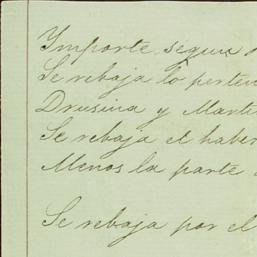 Ymporte segun
Se rebaja lo perten
Drusina y Marti
Se rebaja el haber
Menos la parte
Se rebaja por el